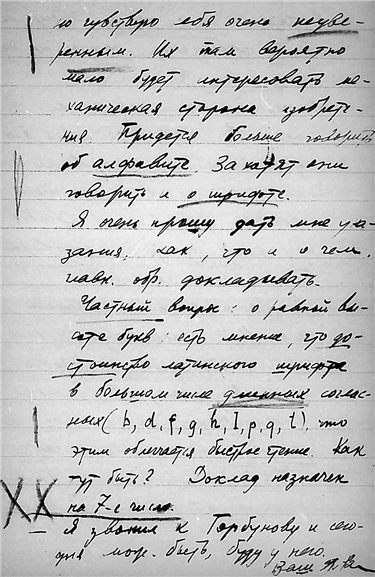 ю чувствую себя очень неуве-
ренным. Их там вероятно
мало будет интересовать ме-
ханическая сторона изобрете-
ния Придется больше говорить
об алфавите. Захотят они
говорить и о шрифте.
Я очень прошу дать мне ука-
зания, как, что и о чем.
главн. обр. докладывать.
Частный вопрос: о равной вы-
соте букв: есть мнение, что до-
стоинство латинского шрифта
в большом числе длинных соглас-
ных (b, d, f, g, h, l, p, q, t), что
этим облегчается быстрое чтение. Как
тут быть? Доклад назначен
на 7-е число.
Я звонил к Горбунову и сего-
дня мож. быть, буду у него.
Ваш